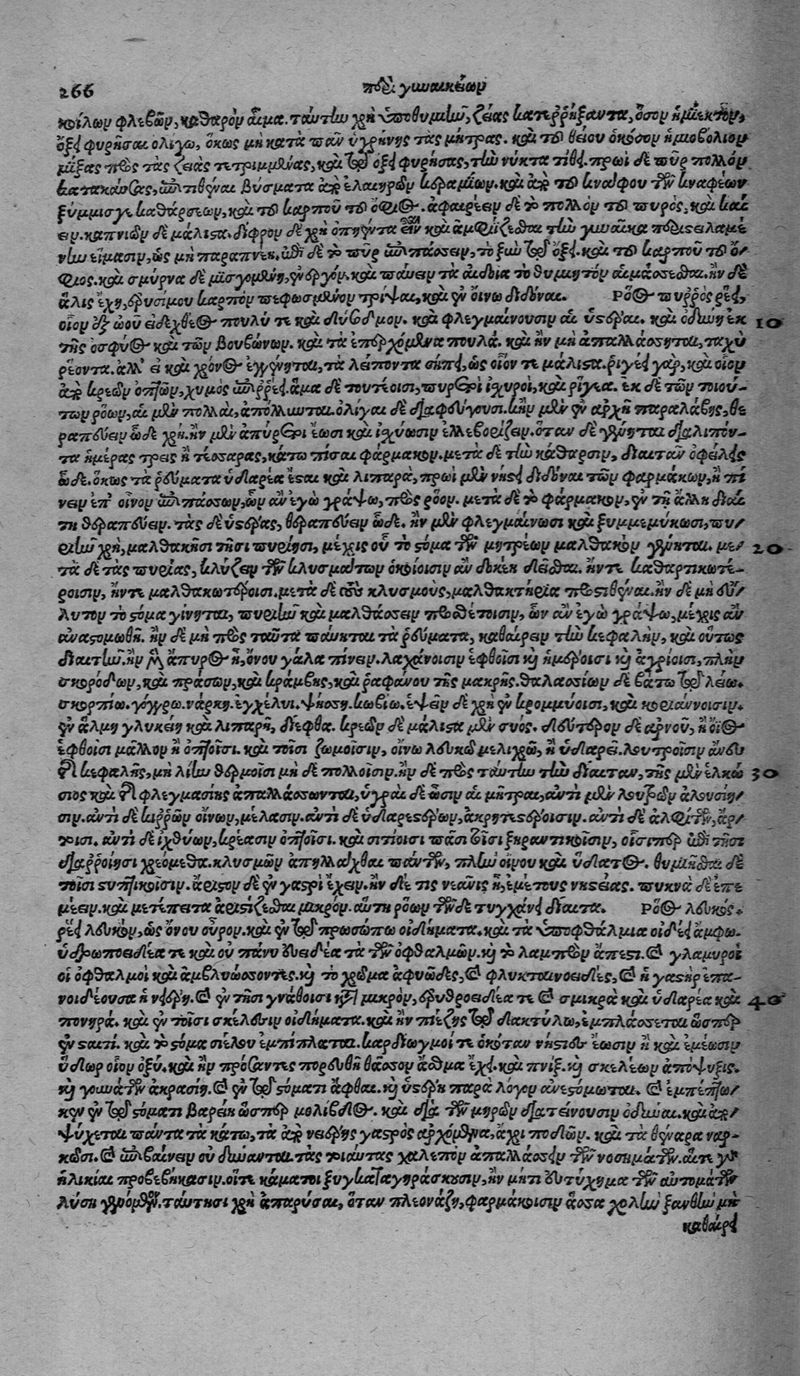 266 περὶ γυναικείων
κοίλων φλεβῶν, καθαρὸν αἷμα. ταύτην χρὴ ὑποθυμιῆν, ζέας κατερρήξαντα, ὅσον ἡμίεκτον,
ὄξει φυρῆσαι ὀλίγῳ, ὅκως μὴ κατὰ πᾶν ὑγρήνῃς τὰς μήτρας. καὶ τοῦ θείου ὁκόσον ἡμιοβόλιον
μίξας πρὸς τὰς ζειὰς τετριμμένας, καὶ τῷ ὄξει φυρήσας, τὴν νύκτα τίθει. πρωὶ δὲ πῦρ πολλὸν
κατακαύσας, ἐπιτιθέναι βύσματα ἀπὸ ἐλαιηρῶν κεραμίων. καὶ ἀπὸ τοῦ κνάφου τῶν κναφέων
ξύμμισγε καθάρσεων, καὶ τοῦ καρποῦ τοῦ ὄφιος. ἀφαιρέειν δὲ τὸ πολλὸν τοῦ πυρός, καὶ
ειν. καπνιῶν δὲ μάλιστα. δίφρον δὲ χρὴ ὀπηέντα εἶναι καὶ ἀμφιέζεσθαι τὴν γυναῖκα περιειλαμέ
νην εἵμασιν, ὡς μὴ παραπνέῃ. ἐπὶ δὲ τὸ πῦρ ἐπιπάσσειν, τὸ ξὺν τῷ ὄξει. καὶ τοῦ καρποῦ τοῦ ὄ-
φιος. καὶ σμύρνα δὲ μισγομένη, ἐνεργόν. καὶ πάσειν τὰ αἰδοῖα τὸ θυμιητὸν αἱμάσσεσθαι. ἢν δὲ
ἅλις ἔχῃ, ἐρυσίμου καρπὸν πεφωσμένον τρίψαι, καὶ ἐν οἴνῳ διδόναι. Ρόος πυρρὸς ῥέει,
οἷον ἐξ ὠοῦ εἰδεχθέος πουλύ τε καὶ δύσοδμον. καὶ φλεγμαίνουσιν αἱ ὑστέραι. καὶ ὀδύνη ἐκ 10
τῆς ὀσφύος καὶ τῶν βουβώνων. καὶ τὰ ἐπερχόμενα πουλά. καὶ ἢν μὴ ἀπαλλάσσηται, ταχὺ
ῥέοντα. ἀλλ' εἰ καὶ χρόνος ἐγγένηται, τὰ λείποντα σήπει, ὡς οἷόν τε μάλιστα. ῥιγέει γὰρ, καὶ οἷον
ἀπὸ κρεῶν ὀπτῶν, χυμὸς ἀπορρέει. ἅμα δὲ τουτέοισι, πυρετοὶ ἰσχυροί, καὶ ῥίγεα. ἐκ δὲ τῶν τοιού-
των ῥόων, αἱ μὲν πολλαὶ, ἀπόλλυνται. ὀλίγαι δὲ διαφεύγουσι. κἢν μὲν ἐν ἀρχῇ παραλάβῃς, θε
ραπεύειν ὧδε χρή. ἢν μὲν ἀπύρετοι ἔωσι καὶ ἰσχύωσιν ἐλλεβορίζειν. ὅταν δὲ γένηται διαλιπόν-
τα ἡμέρας τρεῖς ἢ τέσσαρας, κάτω πῖσαι φάρμακον. μετὰ δὲ τὴν κάθαρσιν, διαιτᾶν ὀφείλεις
ὧδε. ὅκως τὰ ῥεύματα ὑδαρέα ἔσται καὶ λιπαρά, πρωὶ μὲν νήστει διδόναι τῶν φαρμάκων, ἢ πί
νειν ἐπ' οἶνον ἐπιπάσσων, ὧν ἂν ἐγὼ γράψω, πρὸς ῥόον. μετὰ δὲ τὸ φάρμακον, ἐν τῇ ἄλλῃ διαί
τῃ θεραπεύειν. τὰς δὲ ὑστέρας, θεραπεύειν ὧδε. ἢν μὲν φλεγμαίνωσι καὶ ξυμμεμύκωσι, πυ-
ριῆν χρὴ, μαλθακῇσι τῇσι πυρίῃσι, μέχρις οὗ τὸ στόμα τῶν μητρέων μαλθακὸν γένηται. με- 20
τὰ δὲ τὰς πυρίας, κλύζειν τῶν κλυσμάτων ὁκοίοισιν ἂν δοκέῃ δεῖσθαι. ἤντε καθαρτικωτέ-
ροισιν, ἤντε μαλθακωτέροισι. μετὰ δὲ τοὺς κλυσμοὺς, μαλθακτήρια προστιθέναι. ἢν δὲ μὴ εὔ-
λυτον τὸ στόμα γίνηται, πυριῆν καὶ μαλθάσσειν προσθέτοισιν, ὧν ἂν ἐγὼ γράψω, μέχρις ἂν
ἀναστομωθῇ. ἢν δὲ μὴ πρὸς ταῦτα παύηται τὰ ῥεύματα, καθαίρειν τὴν κεφαλὴν, καὶ οὕτως
διαιτῆν. ἢν μὲν ἄπυρος ᾖ, ὄνου γάλα πίνειν. λαχάνοισιν ἑφθοῖσι καὶ ἡμέροισι καὶ ἀγρίοισι, πλὴν
σκορόδων, καὶ πράσων, καὶ κράμβης, καὶ ῥαφάνου τῆς μακρῆς. θαλασσίων δὲ βάτῳ τῷ λείῳ.
σκορπίῳ. γόγγρῳ. νάρκῃ. ἐγχέλυι. ψήσσῃ. κωβιῷ. ἕψειν δὲ χρὴ ἐν κρομμύοισι, καὶ κοριάννοισιν.
ἐν ἅλμῃ γλυκείῃ καὶ λιπαρῇ, δίεφθα. κρεῶν δὲ μάλιστα μὲν συός. δεύτερον δὲ ἀρνοῦ, ἢ ὄϊος
ἑφθοῖσι μᾶλλον ἢ ὀπτοῖσι. καὶ τοῖσι ζωμοῖσιν, οἴνῳ λευκῷ μελιχρῷ, ἢ ὑδαρεῖ. λουτροῖσιν ἄνευ
τῆς κεφαλῆς, μὴ λίην θερμοῖσι μὴ δὲ πολλοῖσιν. ἢν δὲ πρὸς ταύτην τὴν δίαιταν, τῆς μὲν ἑλκώ 30
σιος καὶ τῆς φλεγμασίης ἀπαλλάσσωνται, ὑγραὶ δὲ ὦσιν αἱ μῆτραι, ἀντὶ μὲν λουτρῶν ἀλουσίῃ-
σιν. ἀντὶ δὲ κιρρῶν οἴνων, μέλασιν. ἀντὶ δὲ ὑδαρεστέρων, ἀκρητεστέροισιν. ἀντὶ δὲ ἀλφίτων, ἄρ-
τοισι. ἀντὶ δὲ ἰχθύων, κρέασιν ὀπτοῖσι. καὶ σιτίοισι πᾶσι τοῖσι ξηραντικοῖσιν, οἷσιπερ ἐπὶ τῇσι
διαρροίῃσι χρεόμεθα. κλυσμῶν ἀπηλλάχθαι πάντων, πλὴν οἴνου καὶ ὕδατος. θυμιῆσθαι δὲ
τοῖσι στυπτικοῖσιν. ἄριστον δὲ ἐν γαστρὶ ἔχειν. ἢν δέ τις νεᾶνις ᾖ, ἐμέτους νηστείας. πυκνὰ δὲ ἐπε
μέειν. καὶ μετέπειτα ἀριστίζεσθαι μικρόν. αὕτη ῥόων τῶνδε τυγχάνει δίαιτα. Ρόος λευκός.
ῥέει λευκὸν, ὡς ὄνου οὖρον. καὶ ἐν τῷ προσώπῳ οἰδήματα. καὶ τὰ ὑποφθάλμια οἰδέει ἄμφω.
ὑδρωποειδέα τε καὶ οὐ πάνυ εὐειδέα τὰ τῶν ὀφθαλμῶν. καὶ τὸ λαμπρὸν ἄπεστι. καὶ γλαμυροὶ
οἱ ὀφθαλμοὶ καὶ ἀμβλυώσσοντες. καὶ τὸ χρῶμα ἀφυῶδες, καὶ φλυκταινοειδές, καὶ ἡ γαστὴρ ἐπα-
νοιδέουσα ἡ νείερη. καὶ ἐν τῇσι γνάθοισι κατὰ μικρὸν, ἐρυθροειδέα τε καὶ σμικρὰ καὶ ὑδαρέα καὶ 40
πονηρά. καὶ ἐν τοῖσι σκέλεσιν οἰδήματα. καὶ ἢν πιέζῃς τῷ δακτύλῳ, ἐμπλάσσεται ὥσπερ
ἐν σταιτί. καὶ τὸ στόμα σιέλου ἐμπίπλαται. καρδιωγμοί τε ὁκόταν νήστιες ἔωσιν ἢ καὶ ἐμέωσιν
ὕδωρ οἷον ὀξύ. καὶ ἢν πρόσαντες πορευθῇ θᾶσσον ἆσθμα ἔχει. καὶ πνίξ. καὶ σκελέων ἀπόψυξις.
καὶ γουνάτων ἀκρασίη. καὶ ἐν τῷ στόματι ἄφθαι. καὶ ὑστέρη παρὰ λόγον ἀνεστόμωται. καὶ ἐμπέπτω-
κεν ἐν τῷ στόματι βαρείη ὥσπερ μολίβδος. καὶ διὰ τῶν μηρῶν διατείνουσιν ὀδύναι. καὶ ἀπο-
ψύχεται πάντα τὰ κάτω, τὰ ἀπὸ νειέρης γαστρὸς ἀρχόμενα, ἄχρι ποδῶν. καὶ τὰ θέναρα ναρ-
κῶσι. καὶ ἐπιβαίνειν οὐ δύνανται. τὰς τοιαύτας χαλεπὸν ἀπαλλάσσειν τῶν νοσημάτων. αἵ τε γὰρ
ἡλικίαι προβεβήκασιν. οἵτε κάματοι ξυγκαταγηράσκουσιν, ἢν μήτι εὐτύχημα τῶν αὐτομάτων
λύσῃ γενόμενον. ταύτῃσι χρὴ ἀπαρύσαι, ὅταν πλεονάζῃ, φαρμάκοισιν ἅσσα χολὴν ξανθὴν μὴ
καθαίρει